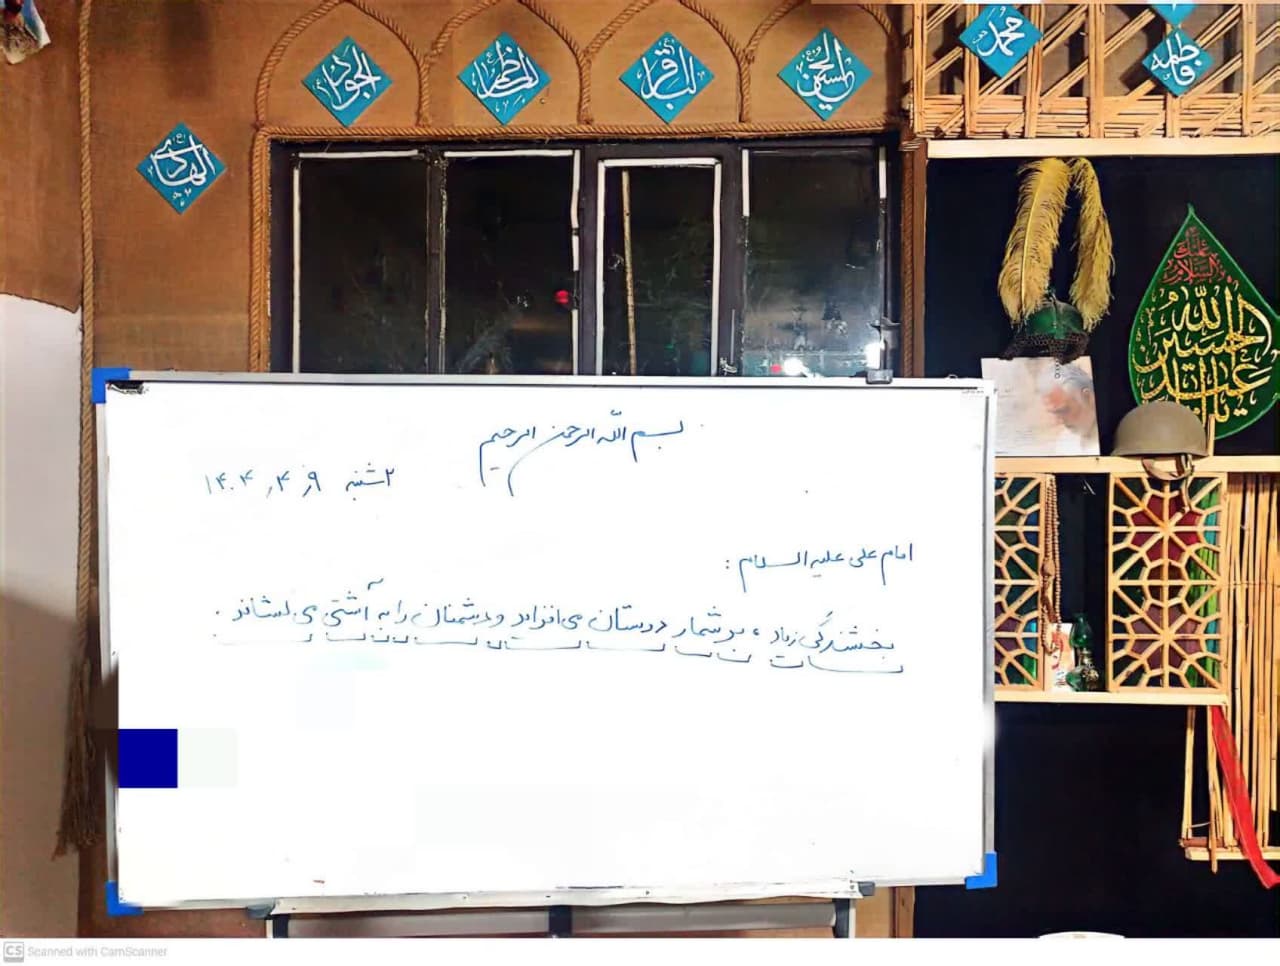 محمد
فاطمه
الجواد
الکاظم
الباقر
الحسین
الهادی
علیه السلام
یا اباعبدالله الحسین
بسم الله الرحمن الرحیم
۲شنبه ۱۴۰۴,۴,۹
امام علی علیه السلام :
بخشندگی زیاد ، بر شمار دوستان می افزاید و دشمنان را به آشتی می کشاند .
CS Scanned with CamScanner